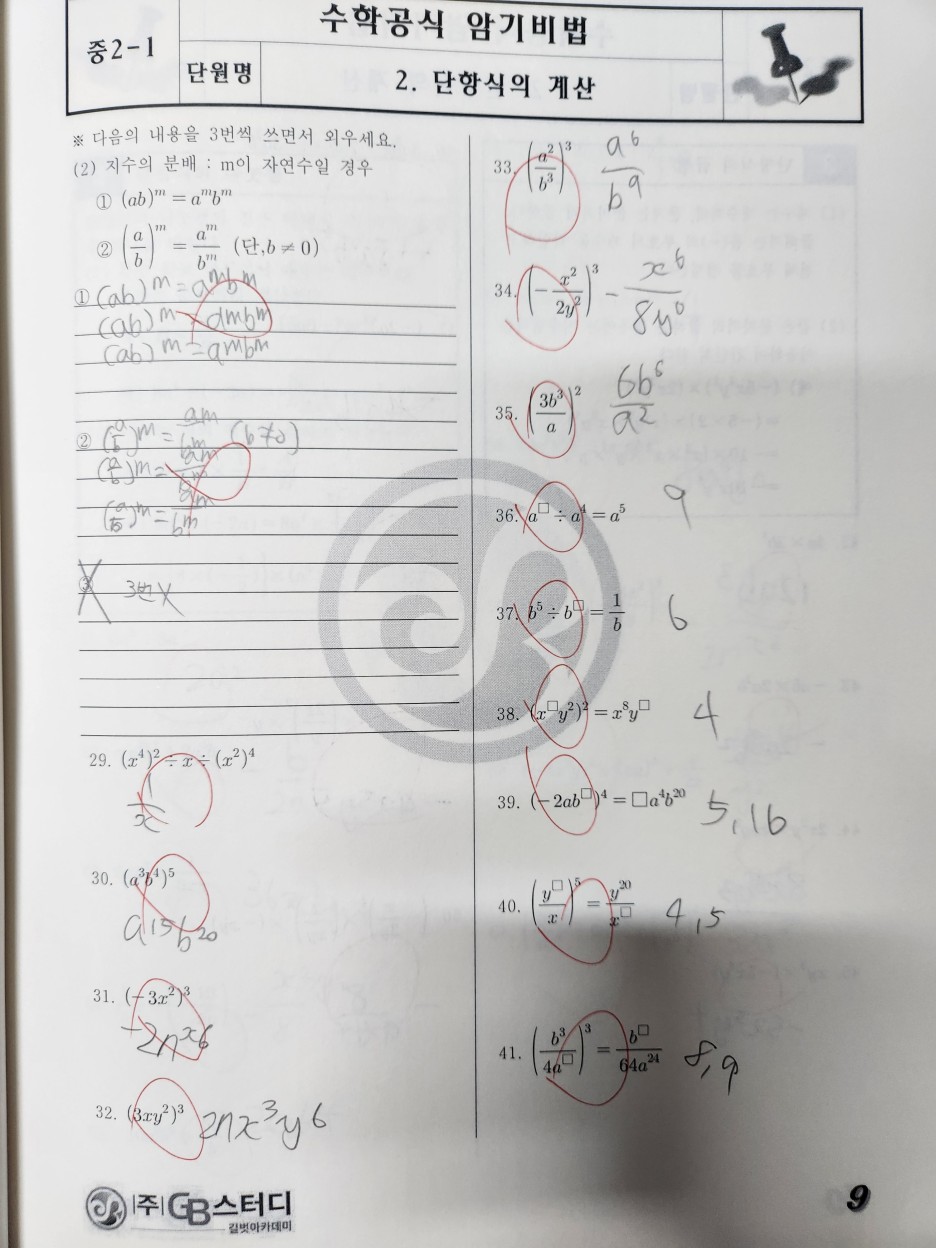 중2-1
수학공식 암기비법
단원명
2. 단항식의 계산
※ 다음의 내용을 3번씩 쓰면서 외우세요.
(2) 지수의 분배 : m이 자연수일 경우
① (ab)^m = a^m b^m
② (a/b)^m = a^m/b^m (단, b ≠ 0)
① (ab)^m = a^m b^m
(ab)^m = a^m b^m
(ab)^m = a^m b^m
② (a/b)^m = a^m/b^m (b≠0)
(a/b)^m = a^m/b^m
(a/b)^m = a^m/b^m
③ 3번X
29. (x^4)^2 ÷ x ÷ (x^2)^4
1/x
30. (a^3b^4)^5
a^15 b^20
31. (-3x^2)^3
-27x^6
32. (3xy^2)^3 27x^3y^6
33. (a^2/b^3)^3 a^6/b^9
34. (-x^2/2y^2)^3 - x^6/8y^6
35. (3b^3/a)^2 6b^6/a^2
36. a^□ ÷ a^4 = a^5 9
37. b^5 ÷ b^□ = 1/b 6
38. (x^□y^2)^2 = x^8y^□ 4
39. (-2ab^□)^4 = □a^4b^20 5,16
40. (y^□/x)^5 = y^20/x^□ 4,5
41. (b^3/4a^□)^3 = b^□/64a^24 8,9
(주)GB스터디
길벗아카데미
9